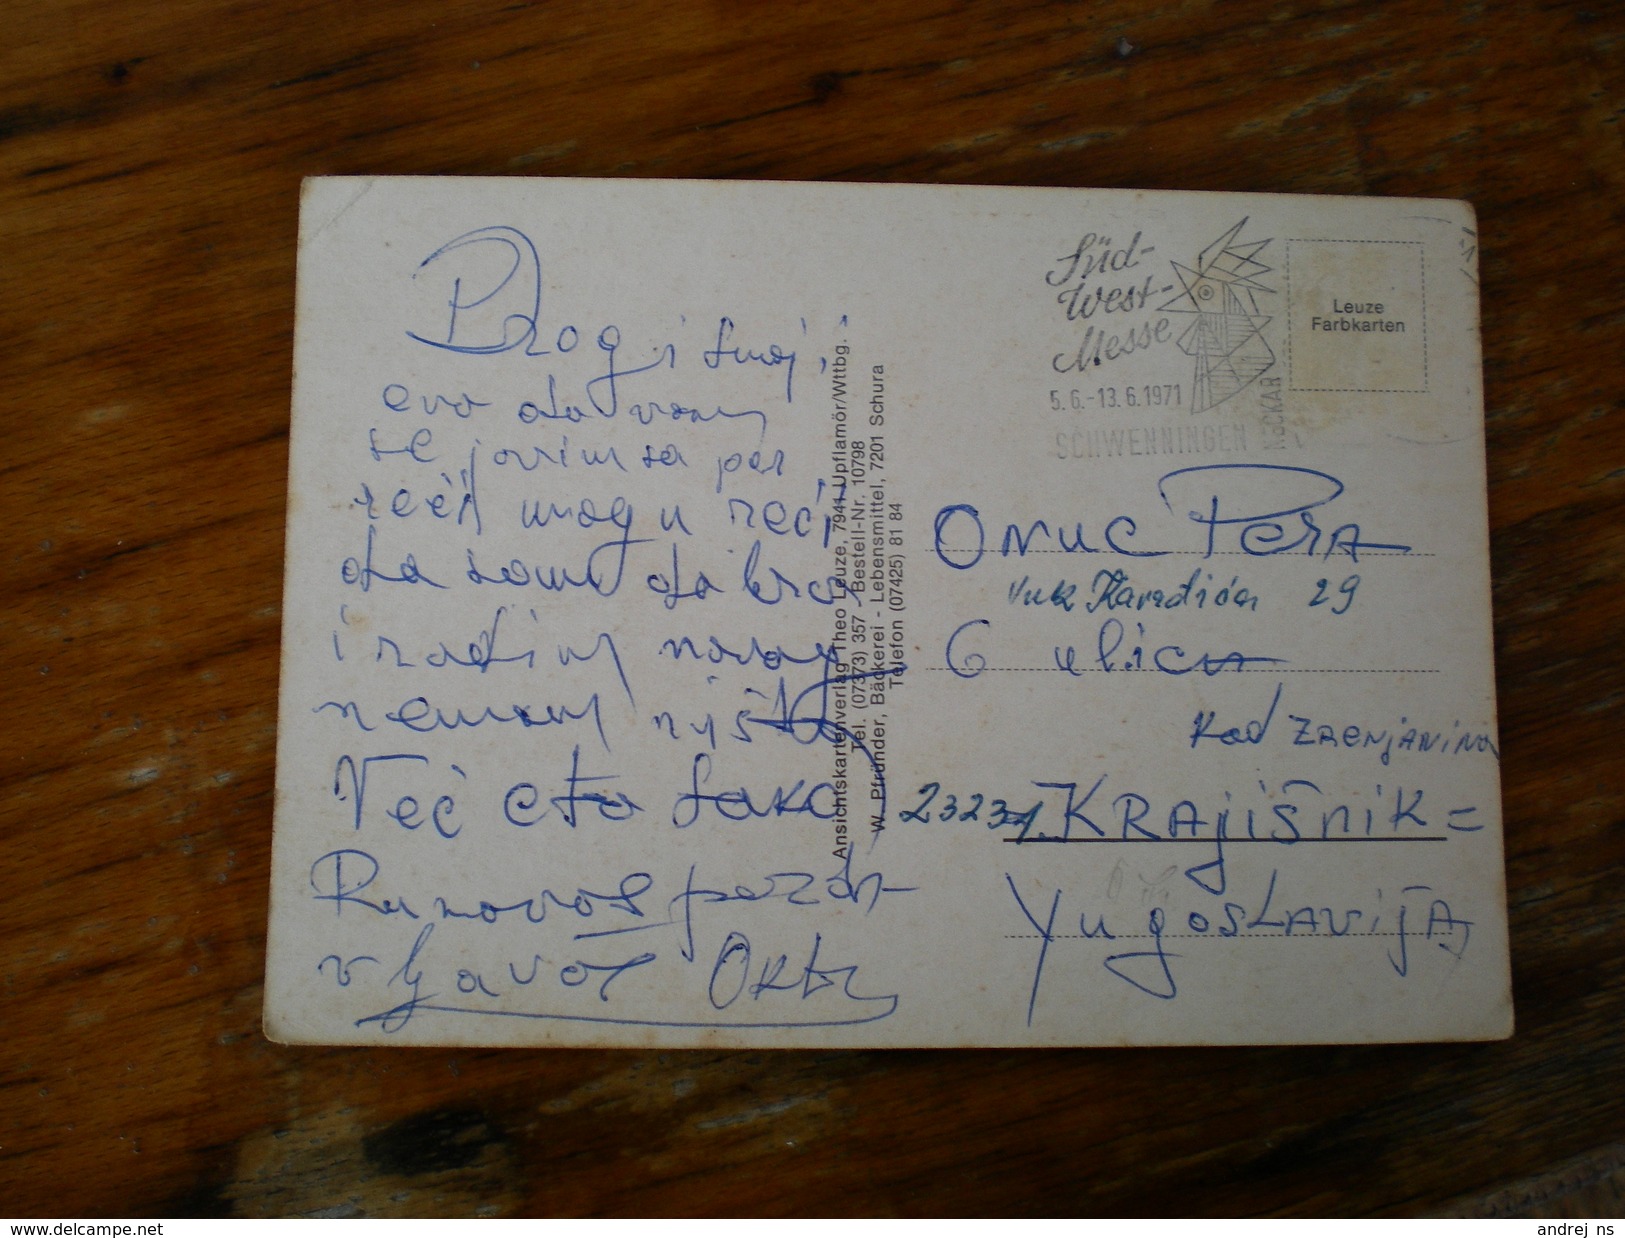 Drog i
evo da vam
se javim sa par
reči mogu reći
da sam dobro
i radim novog
nemam ništa
Već eto tako
Puno vas pozdr
v ljava
Süd-
West-
Messe
5.6.-13.6.1971
SCHWENNINGEN
NECKAR
Leuze
Farbkarten
Ansichtskartenverlag Theo Leuze, 7941 Upflamör/Wttbg.
Tel. (07373) 357 - Bestell-Nr. 10798
W. Pfründer, Bäckerei - Lebensmittel, 7201 Schura
Telefon (07425) 81 84
Onuc Pera
Vuk Karadžića 29
6 ulica
kod Zrenjanina
23231 Krajišnik =
Yugoslavija
www.delcampe.net
andrej_ns